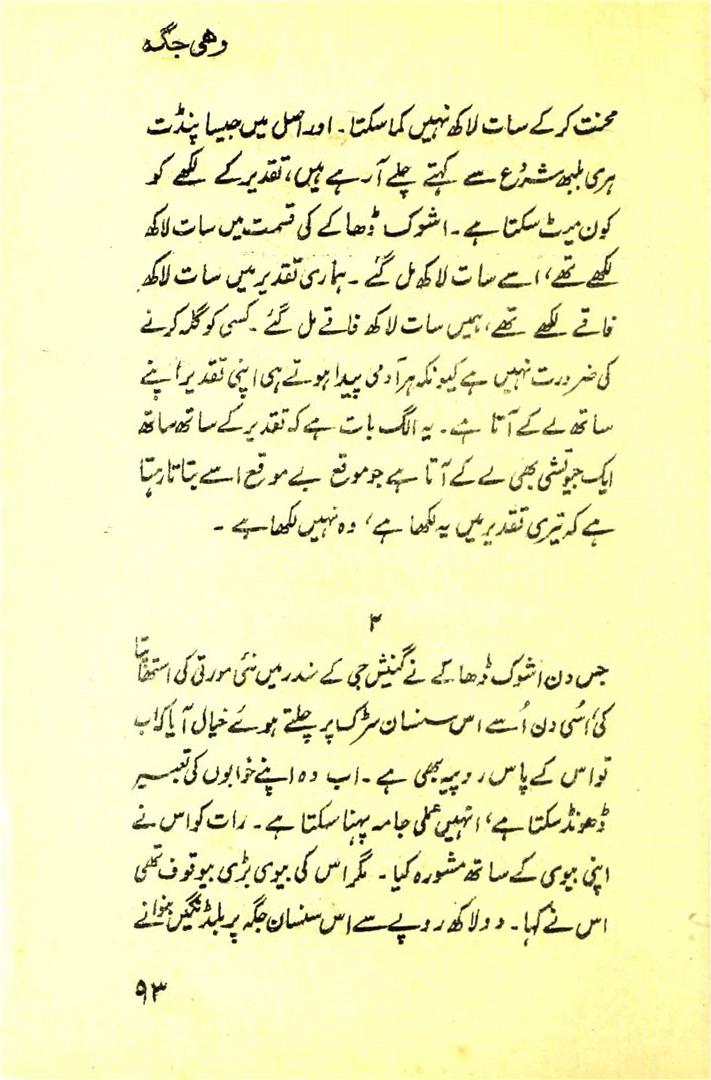 وھی جگہ
محنت کر کے سات لاکھ نہیں کما سکتا۔ اور اصل میں جیسا پنڈت
ہری بلبھ شروع سے کہتے چلے آ رہے ہیں، تقدیر کے لکھے کو
کون میٹ سکتا ہے۔ اشوک ڈھاکے کی قسمت میں سات لاکھ
لکھے تھے، اسے سات لاکھ مل گئے۔ ہماری تقدیر میں سات لاکھ
فاقے لکھے تھے، ہمیں سات لاکھ فاقے مل گئے۔ کسی کو گلہ کرنے
کی ضرورت نہیں ہے کیونکہ ہر آدمی پیدا ہوتے ہی اپنی تقدیر اپنے
ساتھ لے کے آتا ہے۔ یہ الگ بات ہے کہ تقدیر کے ساتھ ساتھ
ایک جیوتشی بھی لے کے آتا ہے جو موقع بے موقع اسے بتاتا رہتا
ہے کہ تیری تقدیر میں یہ لکھا ہے، وہ نہیں لکھا ہے۔
۲
جس دن اشوک ڈھاکے نے گنیش جی کے مندر میں نئی مورتی کی استھاپنا
کی، اُسی دن اُسے اس سنسان سڑک پر چلتے ہوئے خیال آیا کہ اب
تو اس کے پاس روپیہ بھی ہے۔ اب وہ اپنے خوابوں کی تعبیر
ڈھونڈ سکتا ہے، انہیں عملی جامہ پہنا سکتا ہے۔ رات کو اس نے
اپنی بیوی کے ساتھ مشورہ کیا۔ مگر اس کی بیوی بڑی بیوقوف تھی
اس نے کہا۔ دو لاکھ روپے سے اس سنسان جگہ پر بلڈنگیں بنوانے
۹۳